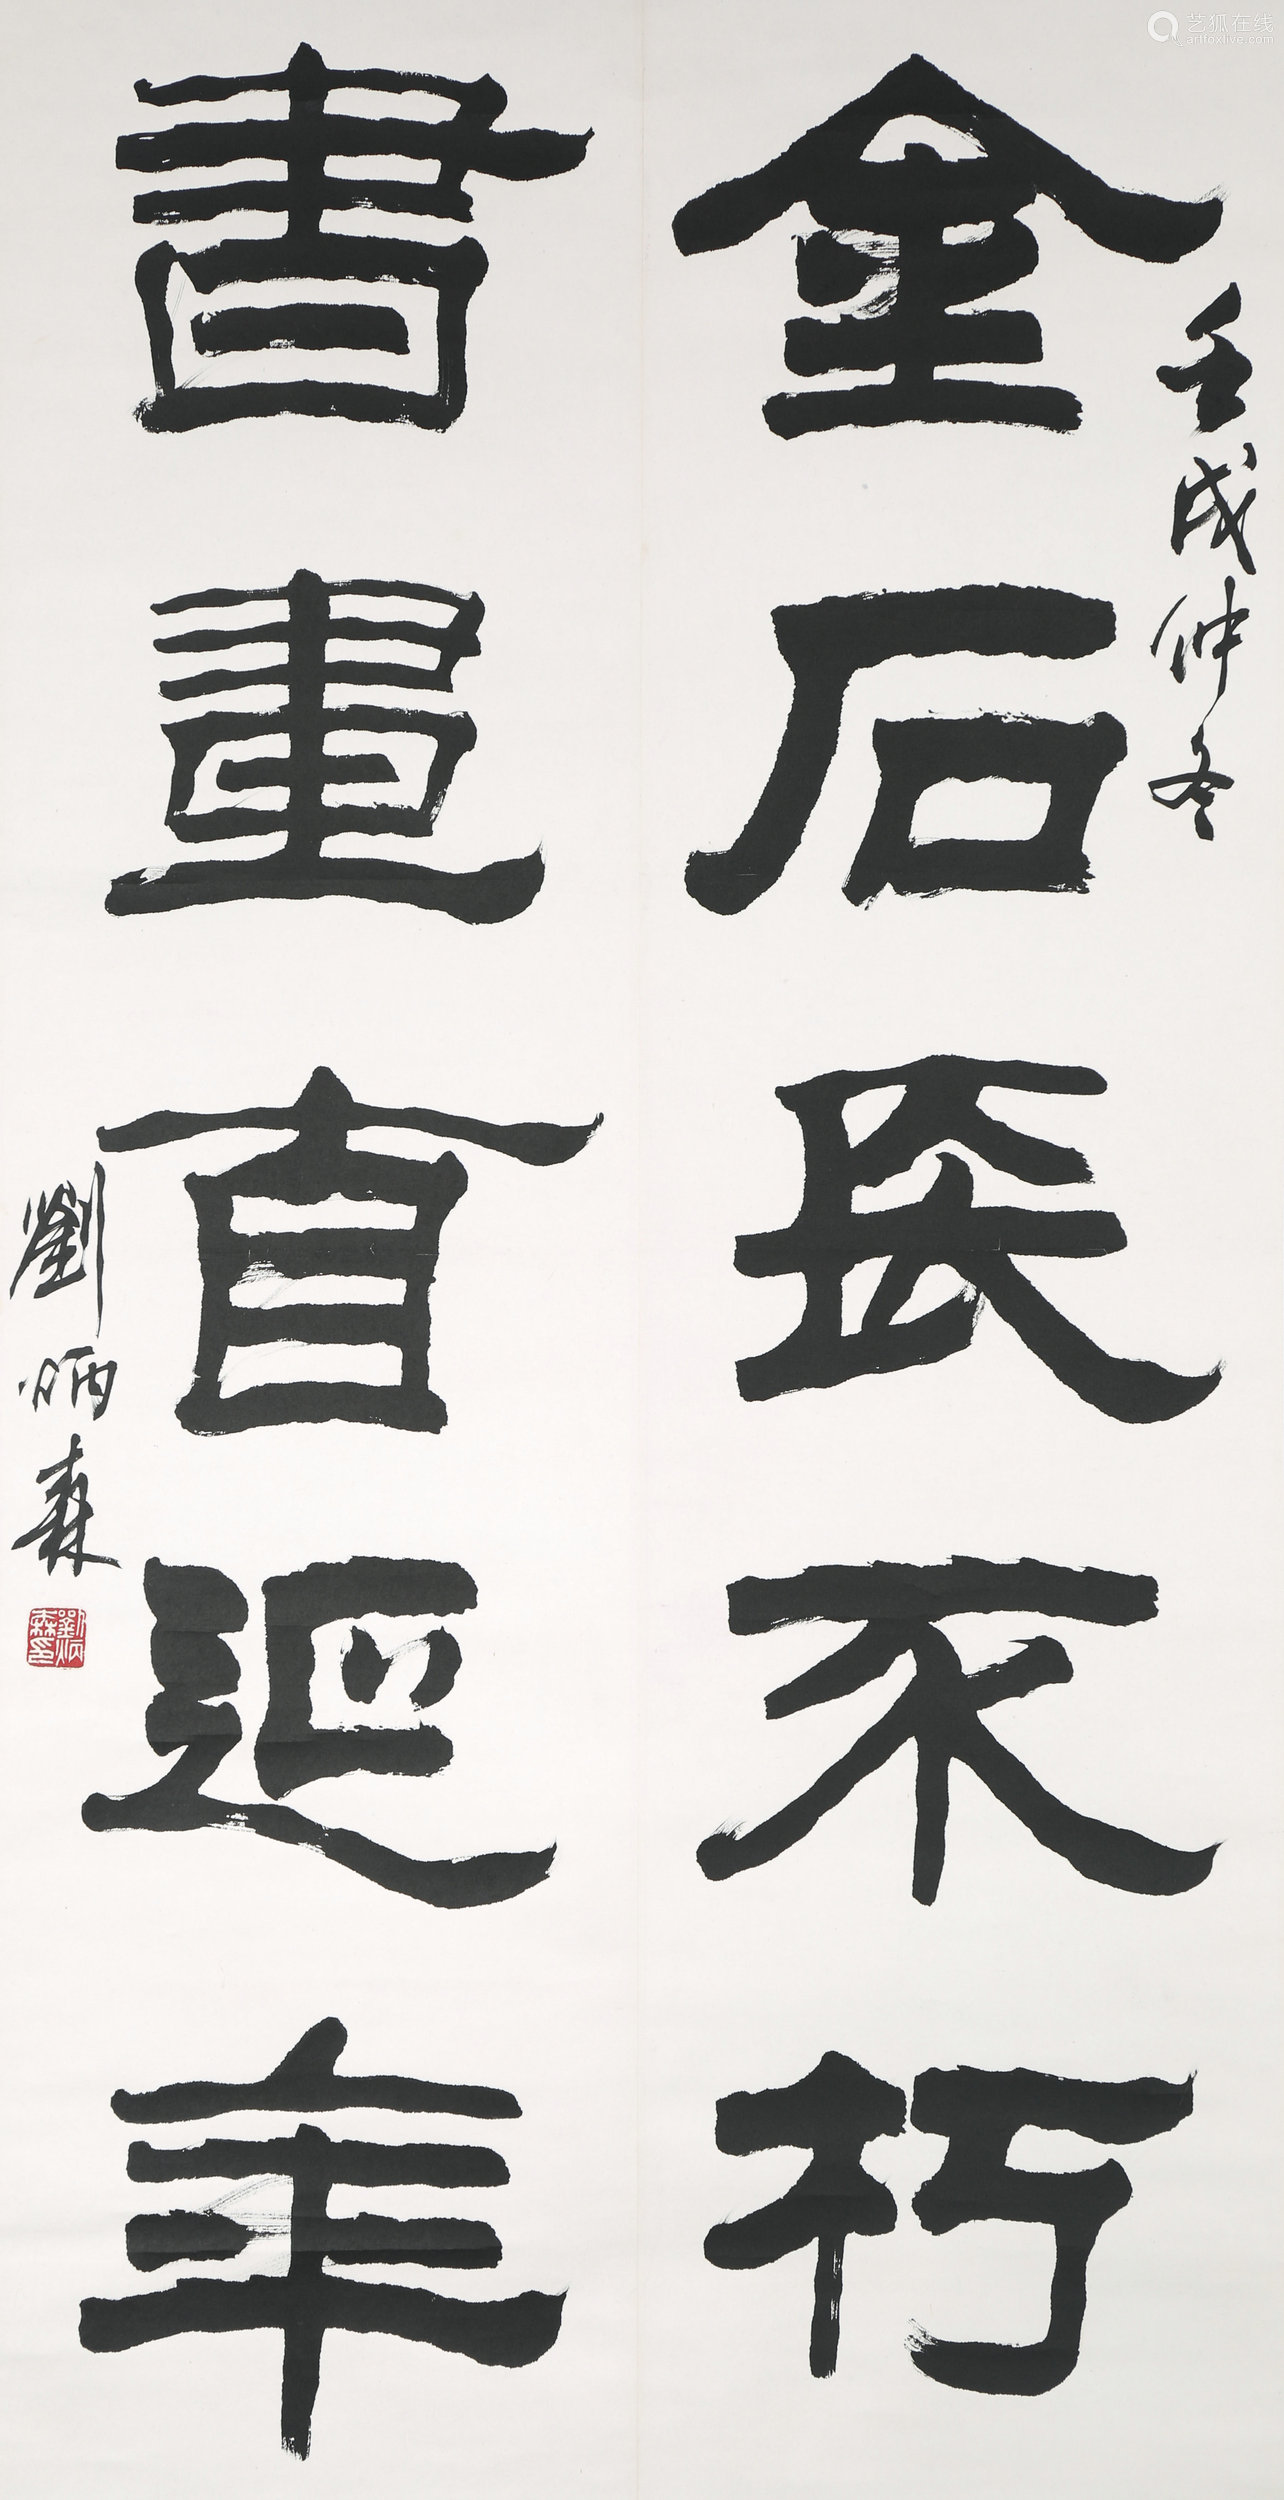 艺狐在线
artfoxlive.com
壬戌仲冬
金石長不朽
書畫直延年
劉炳森
劉炳森印